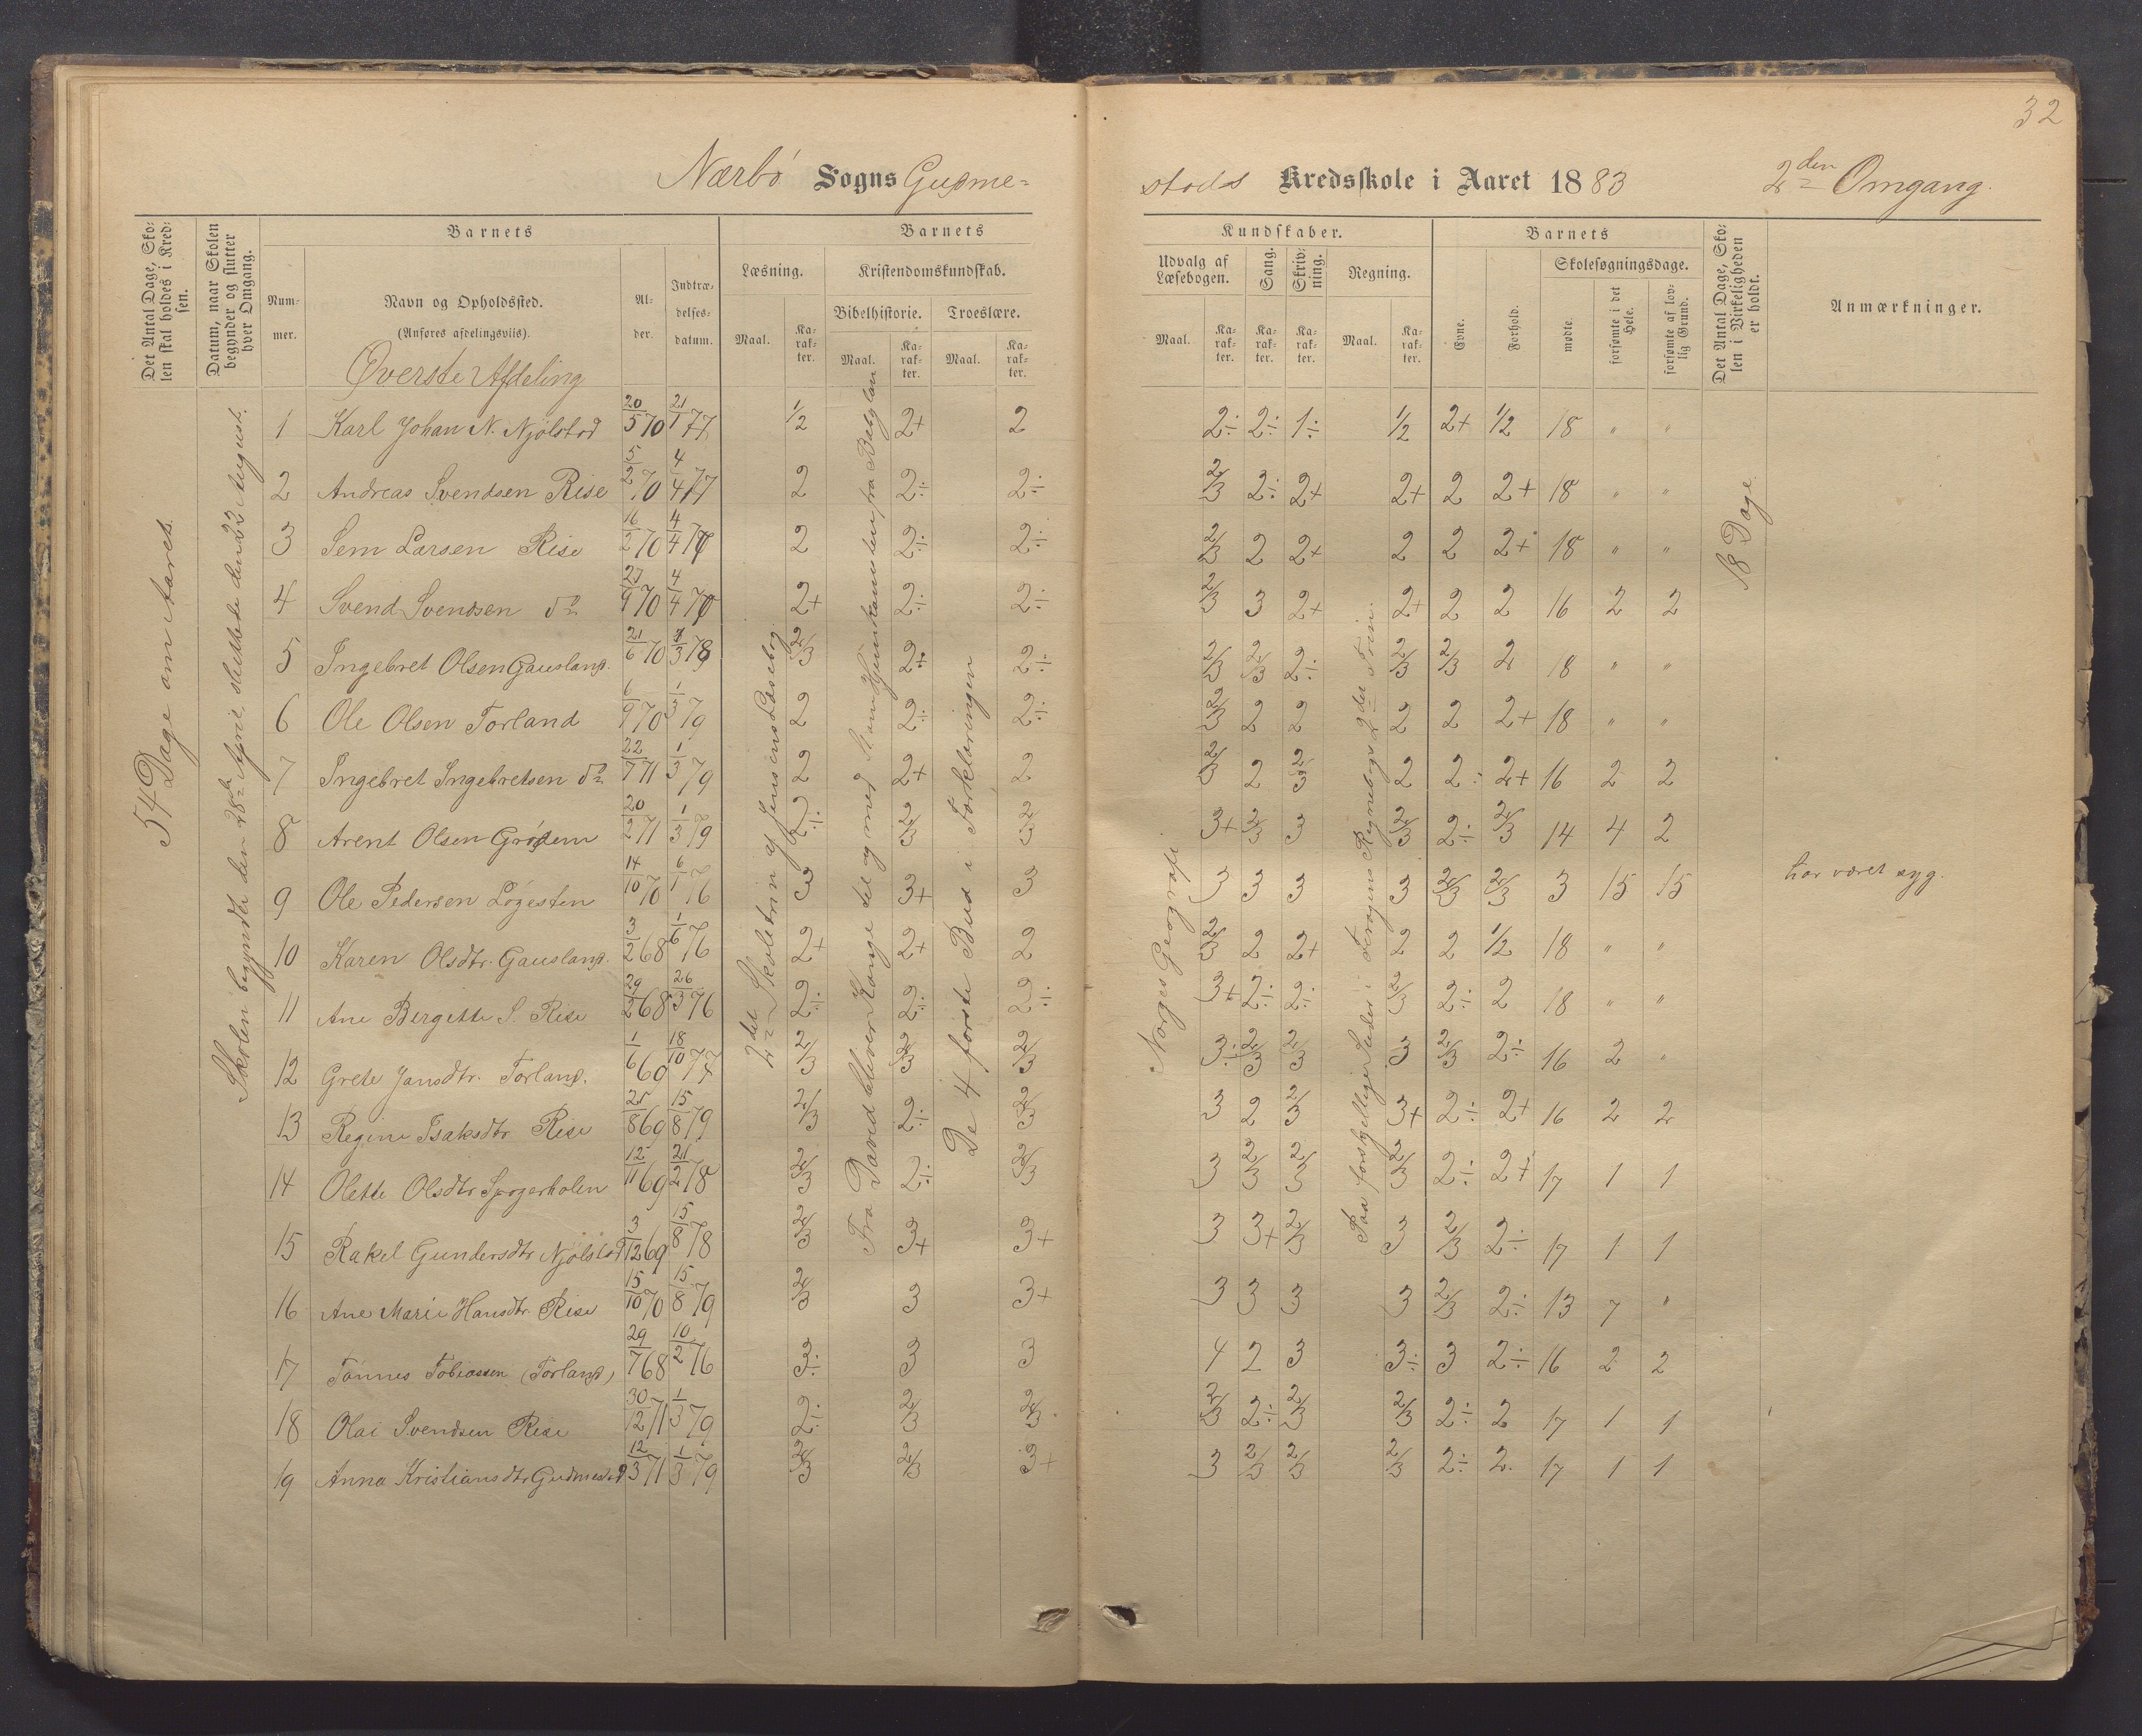 32
Nærbø Sogns Gudme=
stads Kredsskole i Aaret 1883 2den Omgang.
Det Antal Dage, Sko:
len skal holdes i Kred:
sen.
Datum, naar Skolen
begynder og slutter
hver Omgang.
Barnets
Num:
mer.
Navn og Opholdssted.
(Anføres afdelingsviis).
Al:
der.
Indtræ:
delses:
datum.
Barnets
Læsning.
Maal.
Ka:
rak:
ter.
Kristendomskundskab.
Bibelhistorie.
Maal.
Ka:
rak:
ter.
Troeslære.
Maal.
Ka:
rak:
ter.
Kundskaber.
Udvalg af
Læsebogen.
Maal.
Ka:
rak:
ter.
Sang.
Ka:
rak:
ter.
Skriv:
ning.
Ka:
rak:
ter.
Regning.
Maal.
Ka:
rak:
ter.
Barnets
Evne.
Forhold.
Skolesøgningsdage.
mødte.
forsømte i det
Hele.
forsømte af lov:
lig Grund.
Det Antal Dage, Sko:
len i Virkeligheden
er holdt.
Anmærkninger.
54 Dage om Aaret.
Skolen begyndte den 28de April, sluttede den 22 August.
2det Skoletrin af Jensens Læsebog
Fra David bliver Konge til og med Hjemkomsten fra Babylon
De 4 første Bud i Forklaringen
Norges Geografi
Paa forskjellige Steder i Regnebogs 2det Trin.
18 Dage
Øverste Afdeling
1 Karl Johan N. Njølstad 20/5 70 21/1 77 1/2 2+ 2 2÷ 2÷ 1÷ 1/2 2+ 1/2 18 " "
2 Andreas Svendsen Rise 5/2 70 4/4 77 2 2÷ 2÷ 2/3 2÷ 2+ 2+ 2 2+ 18 " "
3 Sem Larsen Rise 16/2 70 4/4 77 2 2÷ 2÷ 2/3 2 2+ 2 2 2+ 18 " "
4 Svend Svendsen do 27/9 70 4/4 77 2+ 2÷ 2÷ 2/3 3 2+ 2+ 2 2 16 2 2
5 Ingebret Olsen Gausland. 21/6 70 1/3 78 2/3 2+ 2÷ 2/3 2/3 2÷ 2/3 2/3 2 18 " "
6 Ole Olsen Torland 6/9 70 1/3 79 2 2÷ 2÷ 2/3 2 2 2 2 2+ 18 " "
7 Ingebret Ingebretsen do 22/7 71 1/3 79 2 2+ 2 2/3 2 2/3 2 2÷ 2+ 16 2 2
8 Arent Olsen Grødem 20/2 71 1/3 79 2÷ 2/3 2/3 3+ 2/3 3 2/3 2÷ 2/3 14 4 2
9 Ole Pedersen Løgesten 14/10 70 6/1 76 3 3+ 3 3 3 3 3 2/3 2/3 3 15 15 har været syg.
10 Karen Olsdtr. Gausland. 3/2 68 1/6 76 2+ 2+ 2 2/3 2 2+ 2 2 1/2 18 " "
11 Ane Bergitte S. Rise 29/2 68 26/3 76 2÷ 2÷ 2÷ 3+ 2÷ 2÷ 2/3 2÷ 2 18 " "
12 Grete Jansdtr. Torland. 1/6 69 18/10 77 2/3 2/3 2/3 3÷ 2/3 2/3 3 2/3 2÷ 16 2 "
13 Regine Isaksdtr Rise 25/8 69 15/8 79 2/3 2÷ 2/3 3 2 2/3 3+ 2÷ 2+ 16 2 2
14 Olette Olsdtr 12/11 69 21/2 78 2/3 2÷ 2/3 3 2/3 2/3 2/3 2÷ 2+ 17 1 1
15 Rakel Gundersdtr Njølstad 3/12 69 15/8 78 2/3 3+ 3+ 3 3+ 2/3 3 2/3 2÷ 17 1 1
16 Ane Marie Hansdtr. Rise 15/10 70 15/8 79 2/3 3 3+ 3 3 3 3 2/3 2÷ 13 7 "
17 Tønnes Tobiassen (Torland) 29/7 68 10/2 76 3÷ 3 3 4 2 3 3÷ 3 2÷ 16 2 2
18 Olai Svendsen Rise 30/12 71 1/3 79 2÷ 2/3 2/3 2/3 2÷ 2/3 2/3 2÷ 2 17 1 1
19 Anna Kristiansdtr Gudmestad 12/3 71 1/3 79 2/3 2/3 3+ 3 2/3 2/3 2/3 2÷ 2 17 1 1